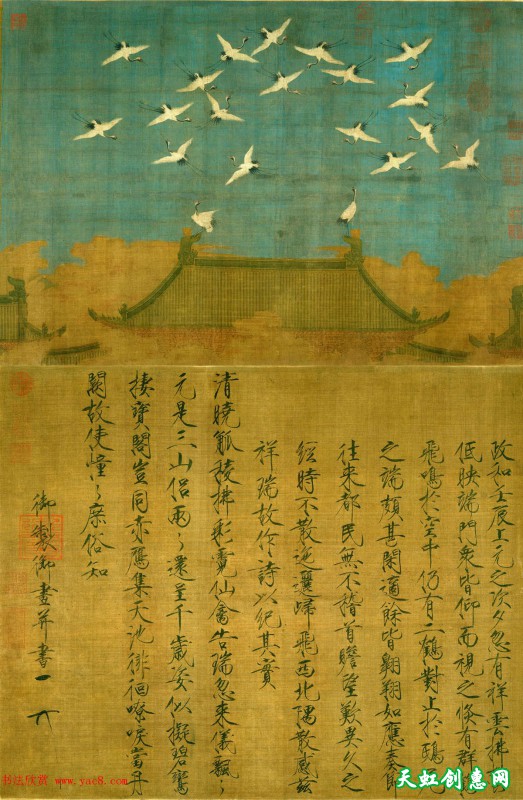 政和壬辰上元之次夕忽有祥雲拂
低映端門眾皆仰而視之倏有群
飛鳴於空中仍有二鶴對止於鴟
之端頗甚閑適餘皆翱翔如應奏節
往來都民無不稽首瞻望歎異久之
經時不散迤邐歸飛西北隅散感茲
祥瑞故作詩以紀其實
清曉觚稜拂彩霓仙禽告瑞忽來儀飄々
元是三山侶兩々還呈千歲姿似擬碧鸞
棲寶閣豈同赤鴈集天池徘徊嘹唳當丹
闕故使憧々庶俗知
御製御畫并書
書法欣赏 www.yac8.com
天虹创惠网